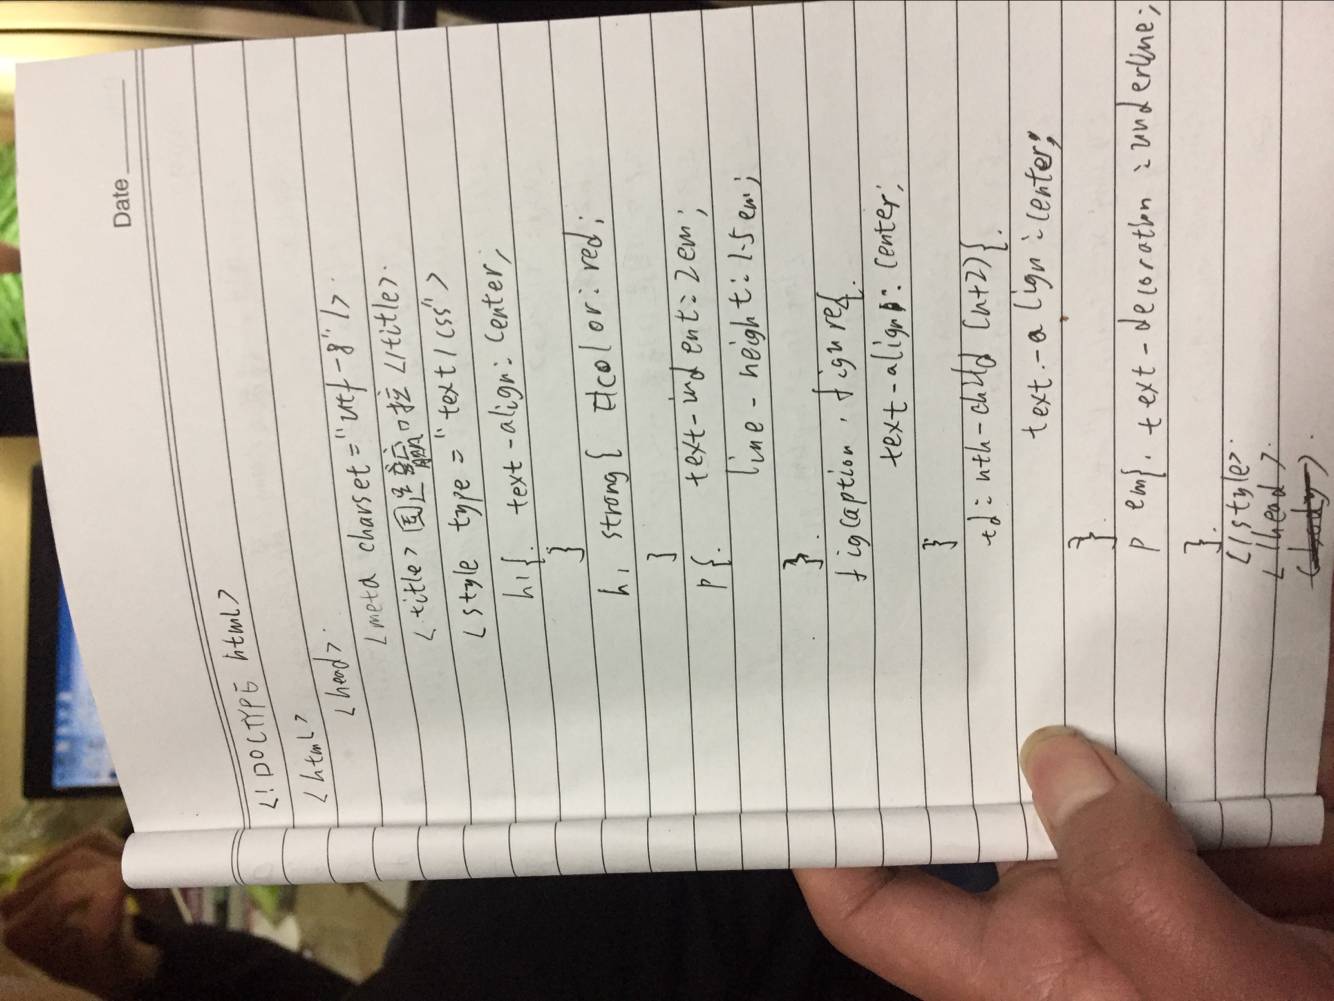 Date
<!DOCTYPE html>
<html>
<head>
<meta charset="utf-8"/>
<title>国足赢口拉</title>
<style type="text/css">
h1{ text-align: center;
}
h1 strong{ color: red;
}
p{ text-indent: 2em;
line-height: 1.5em;
}
figcaption, figure{
text-align: center;
}
td:nth-child (n+2){
text-align: center;
}
p em{ text-decoration: underline;
}
</style>
</head>